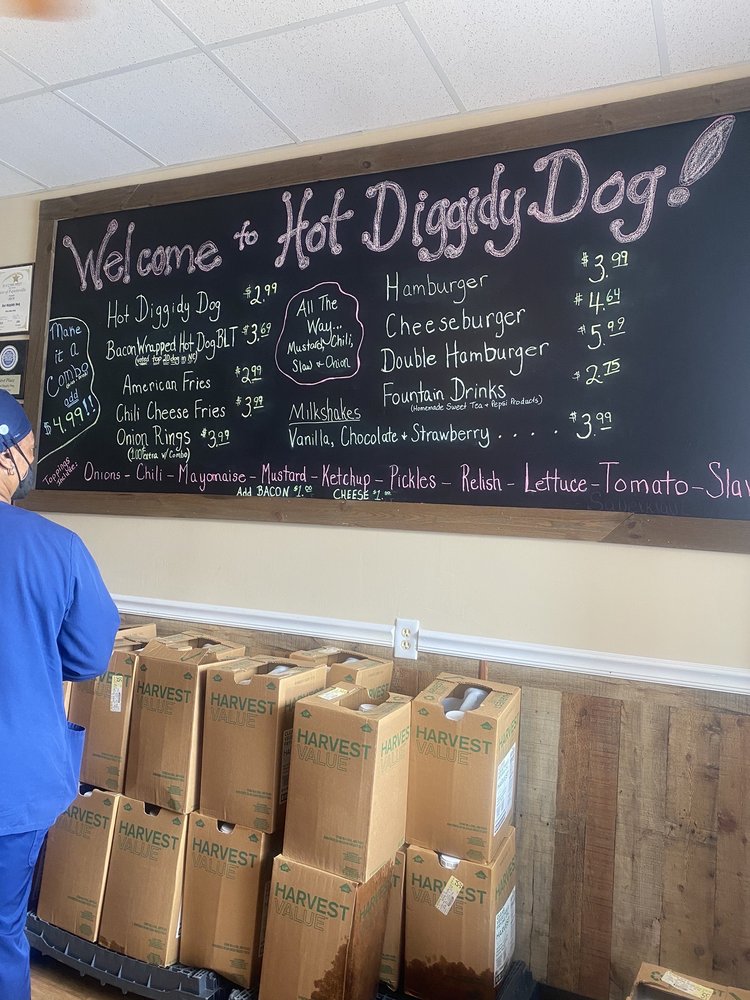 Welcome to Hot Diggidy Dog!
Make
it a
Combo
add
$4.99!!
Hot Diggidy Dog $2.99
Bacon Wrapped Hot Dog BLT $3.69
(voted top 20 dog in NC)
American Fries $2.99
Chili Cheese Fries $3.99
Onion Rings $3.99
(1.00 Extra w/ Combo)
All The
Way...
Mustard, Chili,
Slaw + Onion
Hamburger $3.99
Cheeseburger $4.64
Double Hamburger $5.99
Fountain Drinks $2.75
(Homemade Sweet Tea + Pepsi Products)
Milkshakes
Vanilla, Chocolate + Strawberry . . . . $3.99
Toppings
include:
Onions - Chili - Mayonaise - Mustard - Ketchup - Pickles - Relish - Lettuce - Tomato - Slaw
Add BACON $1.00 CHEESE $1.00
HARVEST
VALUE
HARVEST
VALUE
HARVEST
VALUE
HARVEST
VALUE
HARVEST
VALUE
HARVEST
VALUE
HARVEST
VALUE
HARVEST
VALUE
HARVEST
VALUE
HARVEST
VALUE